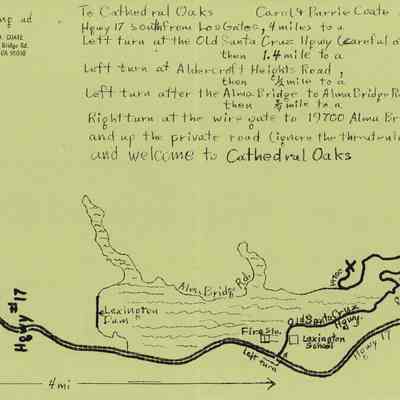 mp ad
To Cathedral Oaks Carol & Barrie Coate
Hgwy 17 south from Los Gatos, 4 miles to a
Left turn at the Old Santa Cruz Hgwy (careful o
then 1.4 mile to a
Left turn at Aldercroft Heights Road,
then 1/2 mile to a
Left turn after the Alma Bridge to Alma Bridge R
then mile to a
Right turn at the wire gate to 19700 Alma Br
and up the private road (ignore the threateni
and welcome to Cathedral Oaks
. COATE
Bridge Rd.
CA 95030
Alma Bridge Rd.
19700
X
Lexington
Dam
Hgwy #17
Old Santa Cruz
Hgwy.
Fire Sta.
Lexington
School
left turn
Hgwy 17
4 mi